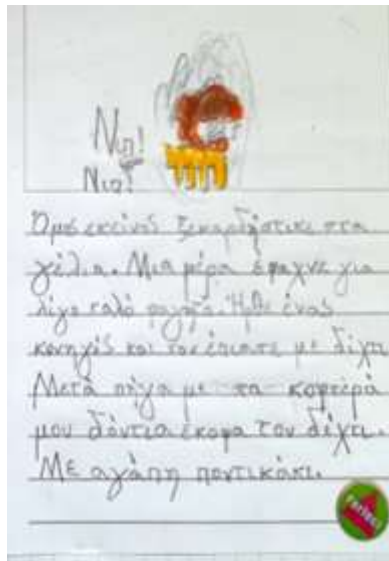 Νιπ!
Νιπ!
Όμως εκείνος ξεκαρδήστικε στα
γέλια. Μια μέρα έψαχνε για
λίγο καλό φαγητό. Ήρθε ένας
κυνηγός και τον έπιασε με δίχτι
Μετά πήγα με τα κοφτερά
μου δόντια έκοψα τον δίχτι.
Με αγάπη ποντικάκι.
Perfect